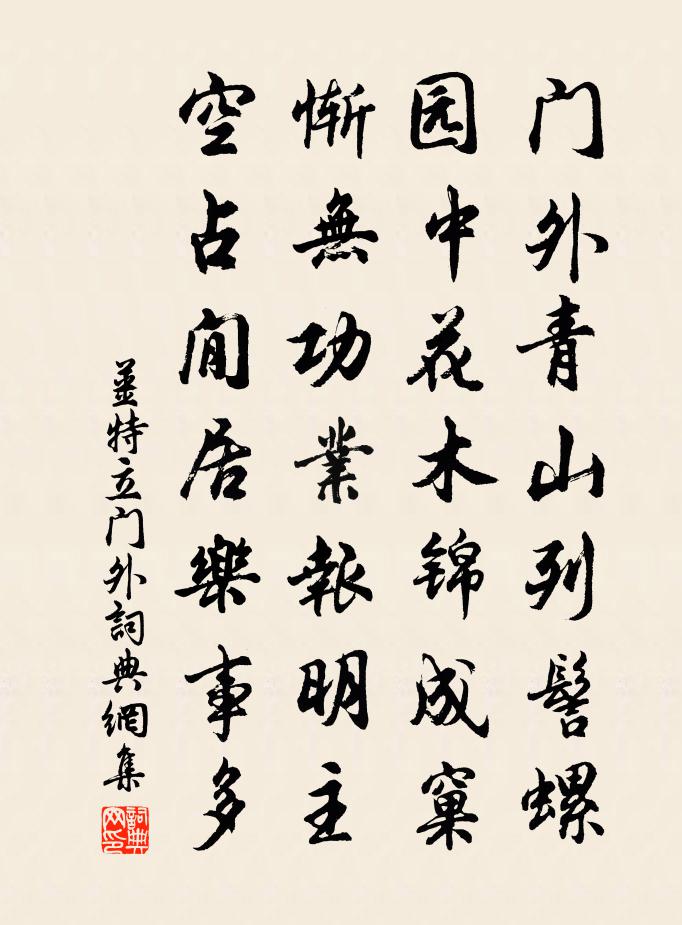 门外青山列髻螺
园中花木锦成窠
惭無功業報明主
空占閒居樂事多
薑特立门外詞典網集
詞典网印